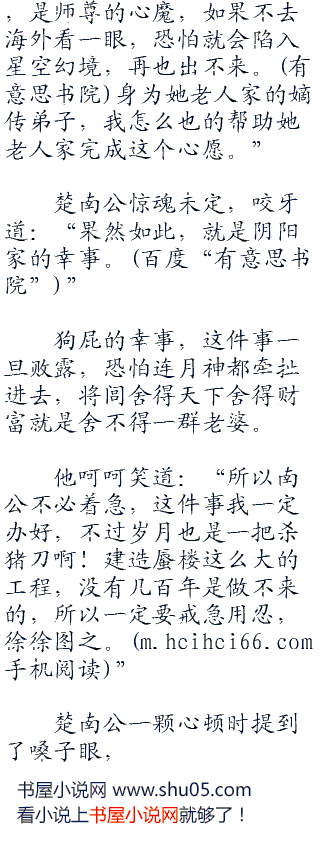 ，是师尊的心魔，如果不去
海外看一眼，恐怕就会陷入
星空幻境，再也出不来。(有
意思书院)身为她老人家的嫡
传弟子，我怎么也的帮助她
老人家完成这个心愿。”
楚南公惊魂未定，咬牙
道：“果然如此，就是阴阳
家的幸事。(百度“有意思书
院”)”
狗屁的幸事，这件事一
旦败露，恐怕连月神都牵扯
进去，将闾舍得天下舍得财
富就是舍不得一群老婆。
他呵呵笑道：“所以南
公不必着急，这件事我一定
办好，不过岁月也是一把杀
猪刀啊！建造蜃楼这么大的
工程，没有几百年是做不来
的，所以一定要戒急用忍，
徐徐图之。(m.hcihci66.com
手机阅读)”
楚南公一颗心顿时提到
了嗓子眼，
书屋小说网 www.shu05.com
看小说上书屋小说网就够了！